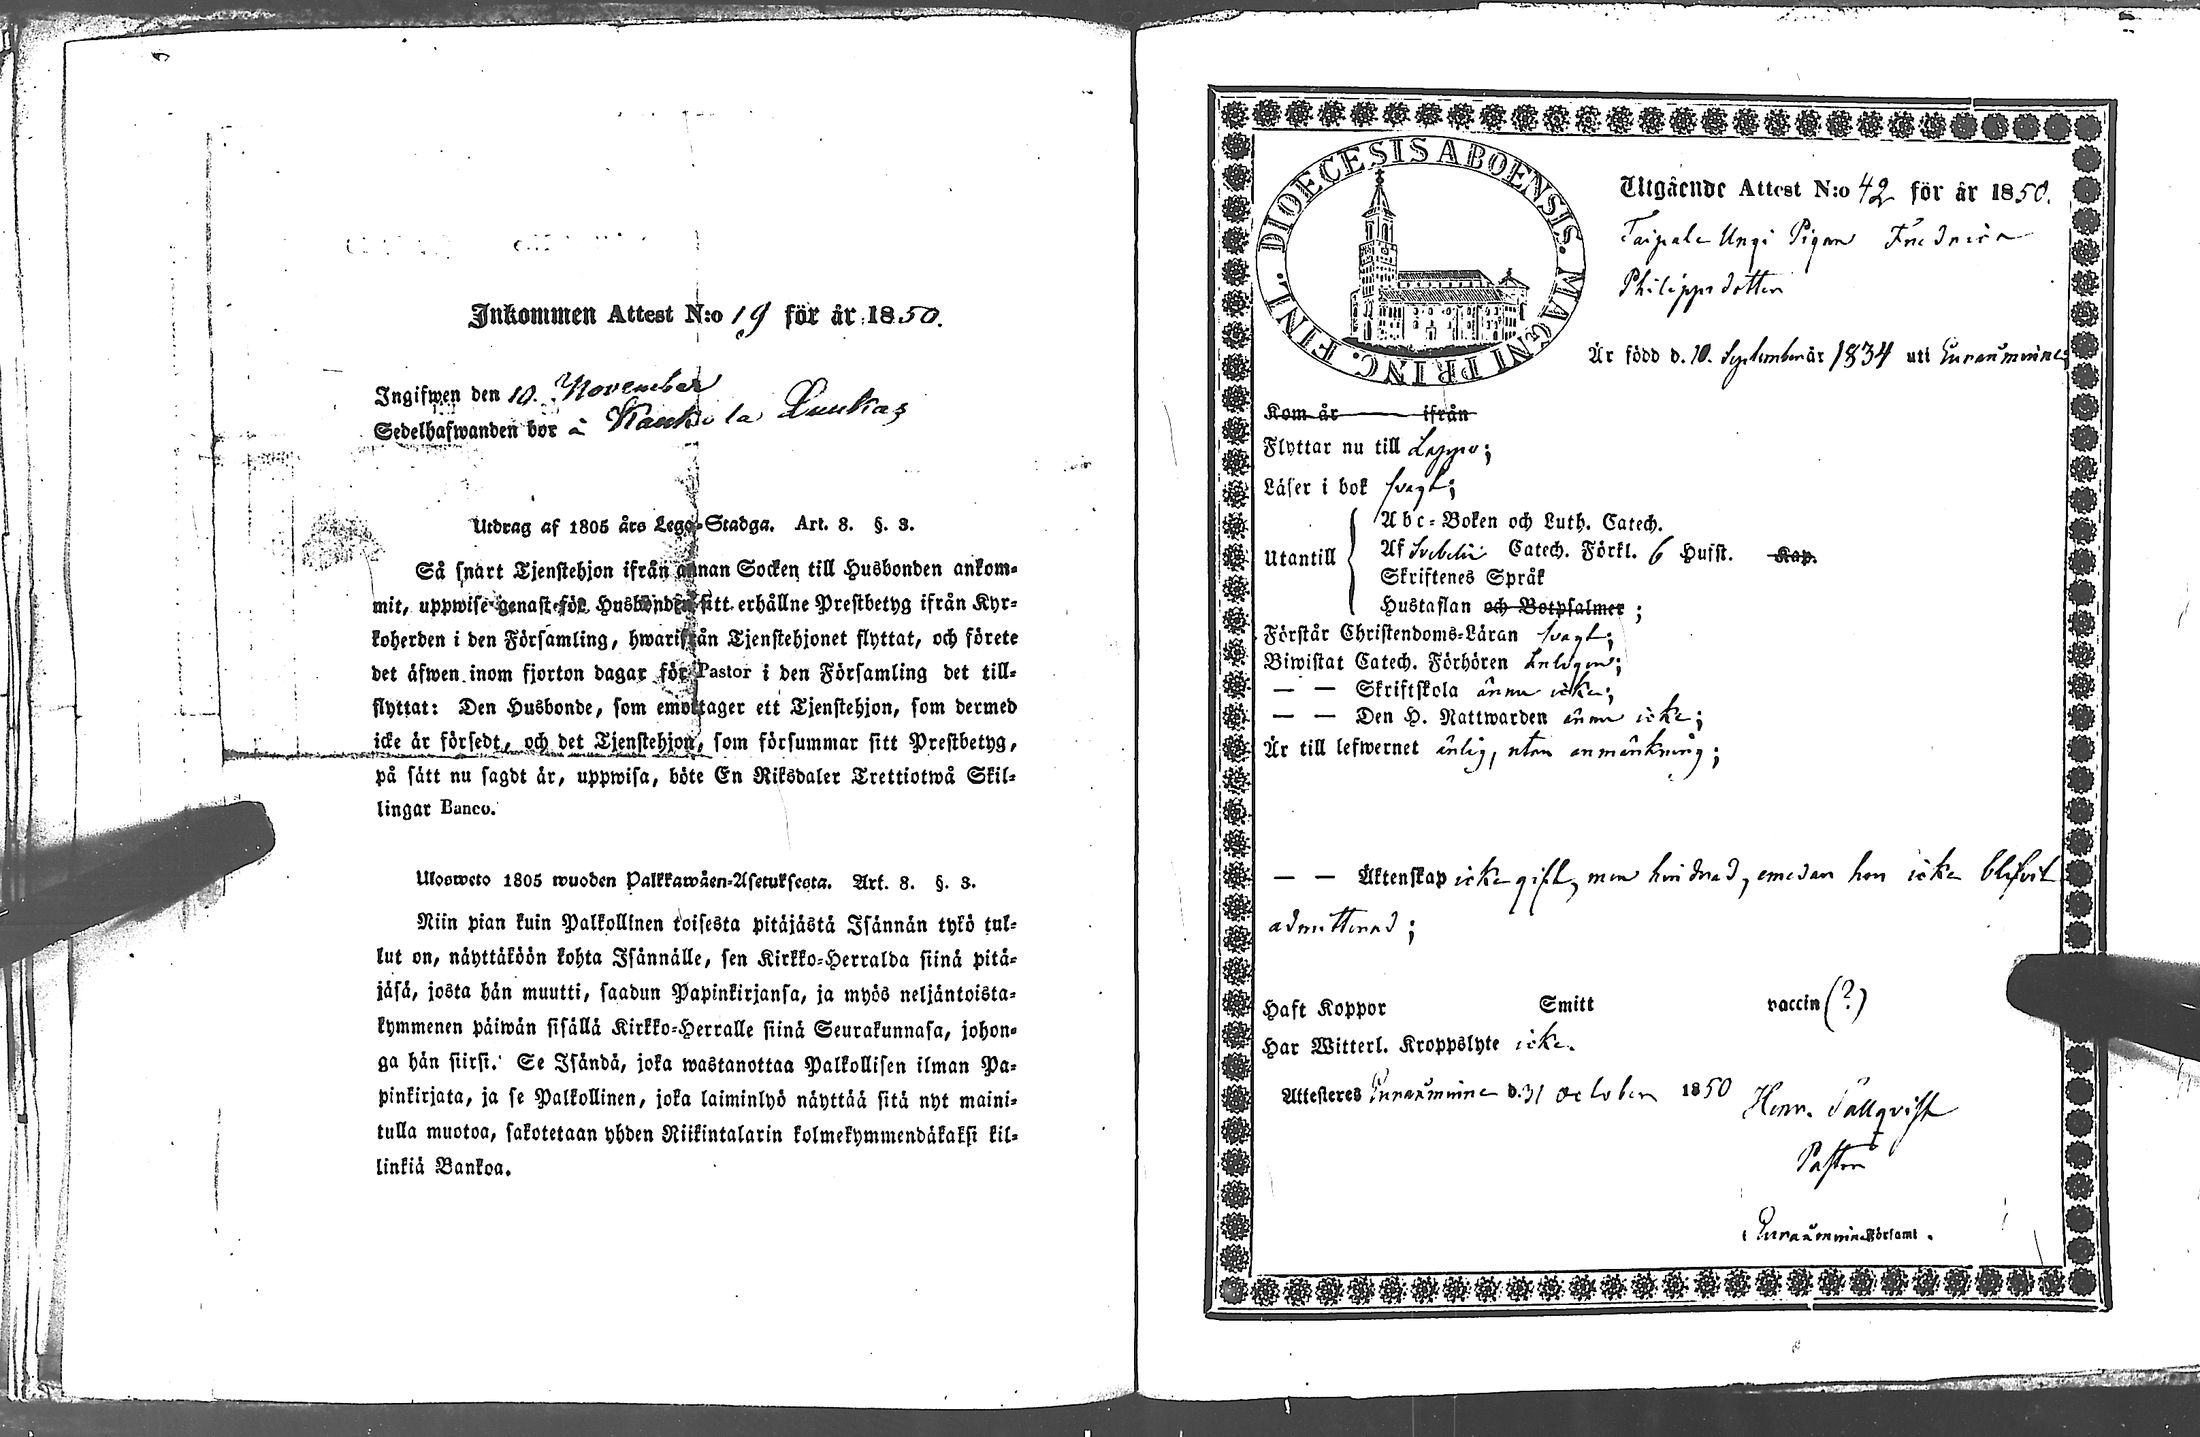 Inkommen Attest N:o 19 för år 1850.
Ingifwen den 10. November
Sedelhafwanden bor å Kaukola Luukas
Utdrag af 1805 års Lego-Stadga. Art. 8. §. 3.
Så snart Tjenstehjon ifrån annan Socken till Husbonden ankom-
mit, uppwise genast för Husbonden sitt erhållne Prestbetyg ifrån Kyr-
koherden i den Församling, hwarifrån Tjenstehjonet flyttat, och förete
det äfwen inom fjorton dagar för Pastor i den Församling det till-
flyttat: Den Husbonde, som emottager ett Tjenstehjon, som dermed
icke är försedt, och det Tjenstehjon, som försummar sitt Prestbetyg,
på sätt nu sagdt är, uppwisa, böte En Riksdaler Trettiotwå Skil-
lingar Banco.
Ulosweto 1805 wuoden Palkkawäen-Asetuksesta. Art. 8. §. 3.
Niin pian kuin Palkollinen toisesta pitäjästä Isännän tykö tul-
lut on, näyttäköön kohta Isännälle, sen Kirkko-Herralda siinä pitä-
jäsä, josta hän muutti, saadun Papinkirjansa, ja myös neljäntoista-
kymmenen päiwän sisällä Kirkko-Herralle siinä Seurakunnasa, johon-
ga hän siirsi. Se Isändä, joka wastanottaa Palkollisen ilman Pa-
pinkirjata, ja se Palkollinen, joka laiminlyö näyttää sitä nyt maini-
tulla muotoa, sakotetaan yhden Riikintalarin kolmekymmendäkaksi kil-
linkiä Bankoa.
DIOECESIS ABOENSIS. MAGNI PRINC. FINL.
Utgående Attest N:o 42 för år 1850.
Taipale Ungi Pigan Fredrica
Philippsdotter
Är född d. 10. September år 1834 uti Euraåminne;
Kom år ifrån
Flyttar nu till Lappo;
Läser i bok svagt;
Abc-Boken och Luth. Catech.
Utantill Af Svebelii Catech. Förkl. 6 Hufst. Kap.
Skriftenes Språk
Hustaflan och Botpsalmer;
Förstår Christendoms-Läran svagt;
Biwistat Catech. Förhören
— — Skriftskola ännu icke;
— — Den H. Nattwarden ännu icke;
Är till lefwernet ärlig, utan anmärkning;
— — Äktenskap icke gift, men hindrad, emedan hon icke blifvit
admitterad;
Haft Koppor Smitt vaccin (?)
Har Witterl. Kroppslyte icke.
Attesteres Euraåminne d. 31 October 1850
Henr. Tallqvist
Pastor
Euraåminne Församl.